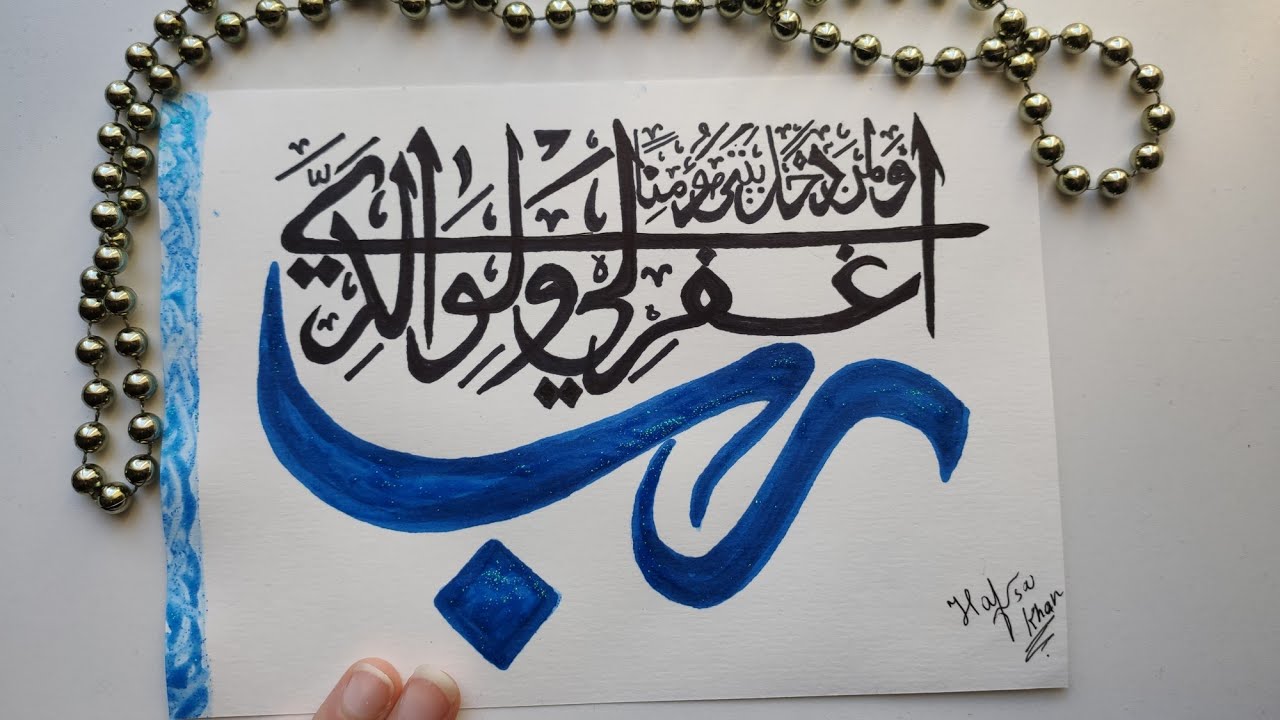 رب
اغفر لي ولوالدي
ولمن دخل بيتي مؤمنا
Hafsa
Khan